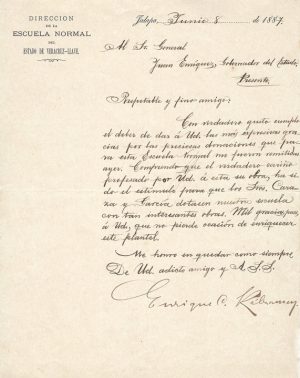 DIRECCION
DE LA
ESCUELA NORMAL
DEL
ESTADO DE VERACRUZ-LLAVE.
Jalapa, Junio 8 de 1887.
Al Sr. General
Juan Enriquez, Gobernador del Estado,
Presente.
Respetable y fino amigo:
Con verdadero gusto cumplo
el deber de dar á Ud. las más expresivas gra-
cias por las preciosas donaciones que pa-
ra esta Escuela Normal me fueron remitidas
ayer. Comprendo que el verdadero cariño
profesado por Ud. á esta su obra, ha si-
do el estímulo para que los Sres.
y García dotasen nuestra escuela
con tan interesantes obras. Mil gracias, pues,
á Ud., que no pierde ocasión de enriquecer
este plantel.
Me honro en quedar como siempre
De Ud. adicto amigo y A. S. S.
Enrique C. Rébsamen